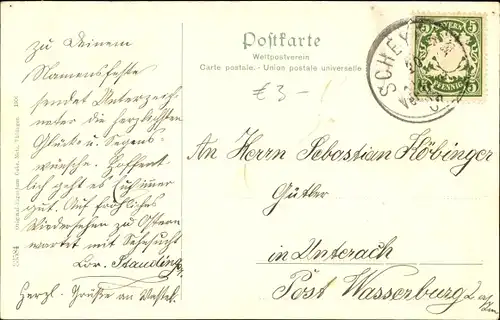 Postkarte
Weltpostverein
Carte postale. - Union postale universelle
€ 3 -
SCHEY
5 5
5 PFENNIG 5
zu Deinem
Namensfeste
sendet Unterzeich
neter die herzlichsten
Glücks u. Segens-
wünsche. Hoffent
lich geht es
gut. Auf fröhliches
Wiedersehen zu Ostern
wartet mit Sehsucht
Lor. Stauding
Herzl. Grüße an
An Herrn Sebastian Köbinger
Gütler
in Unterach
Post Wasserburg